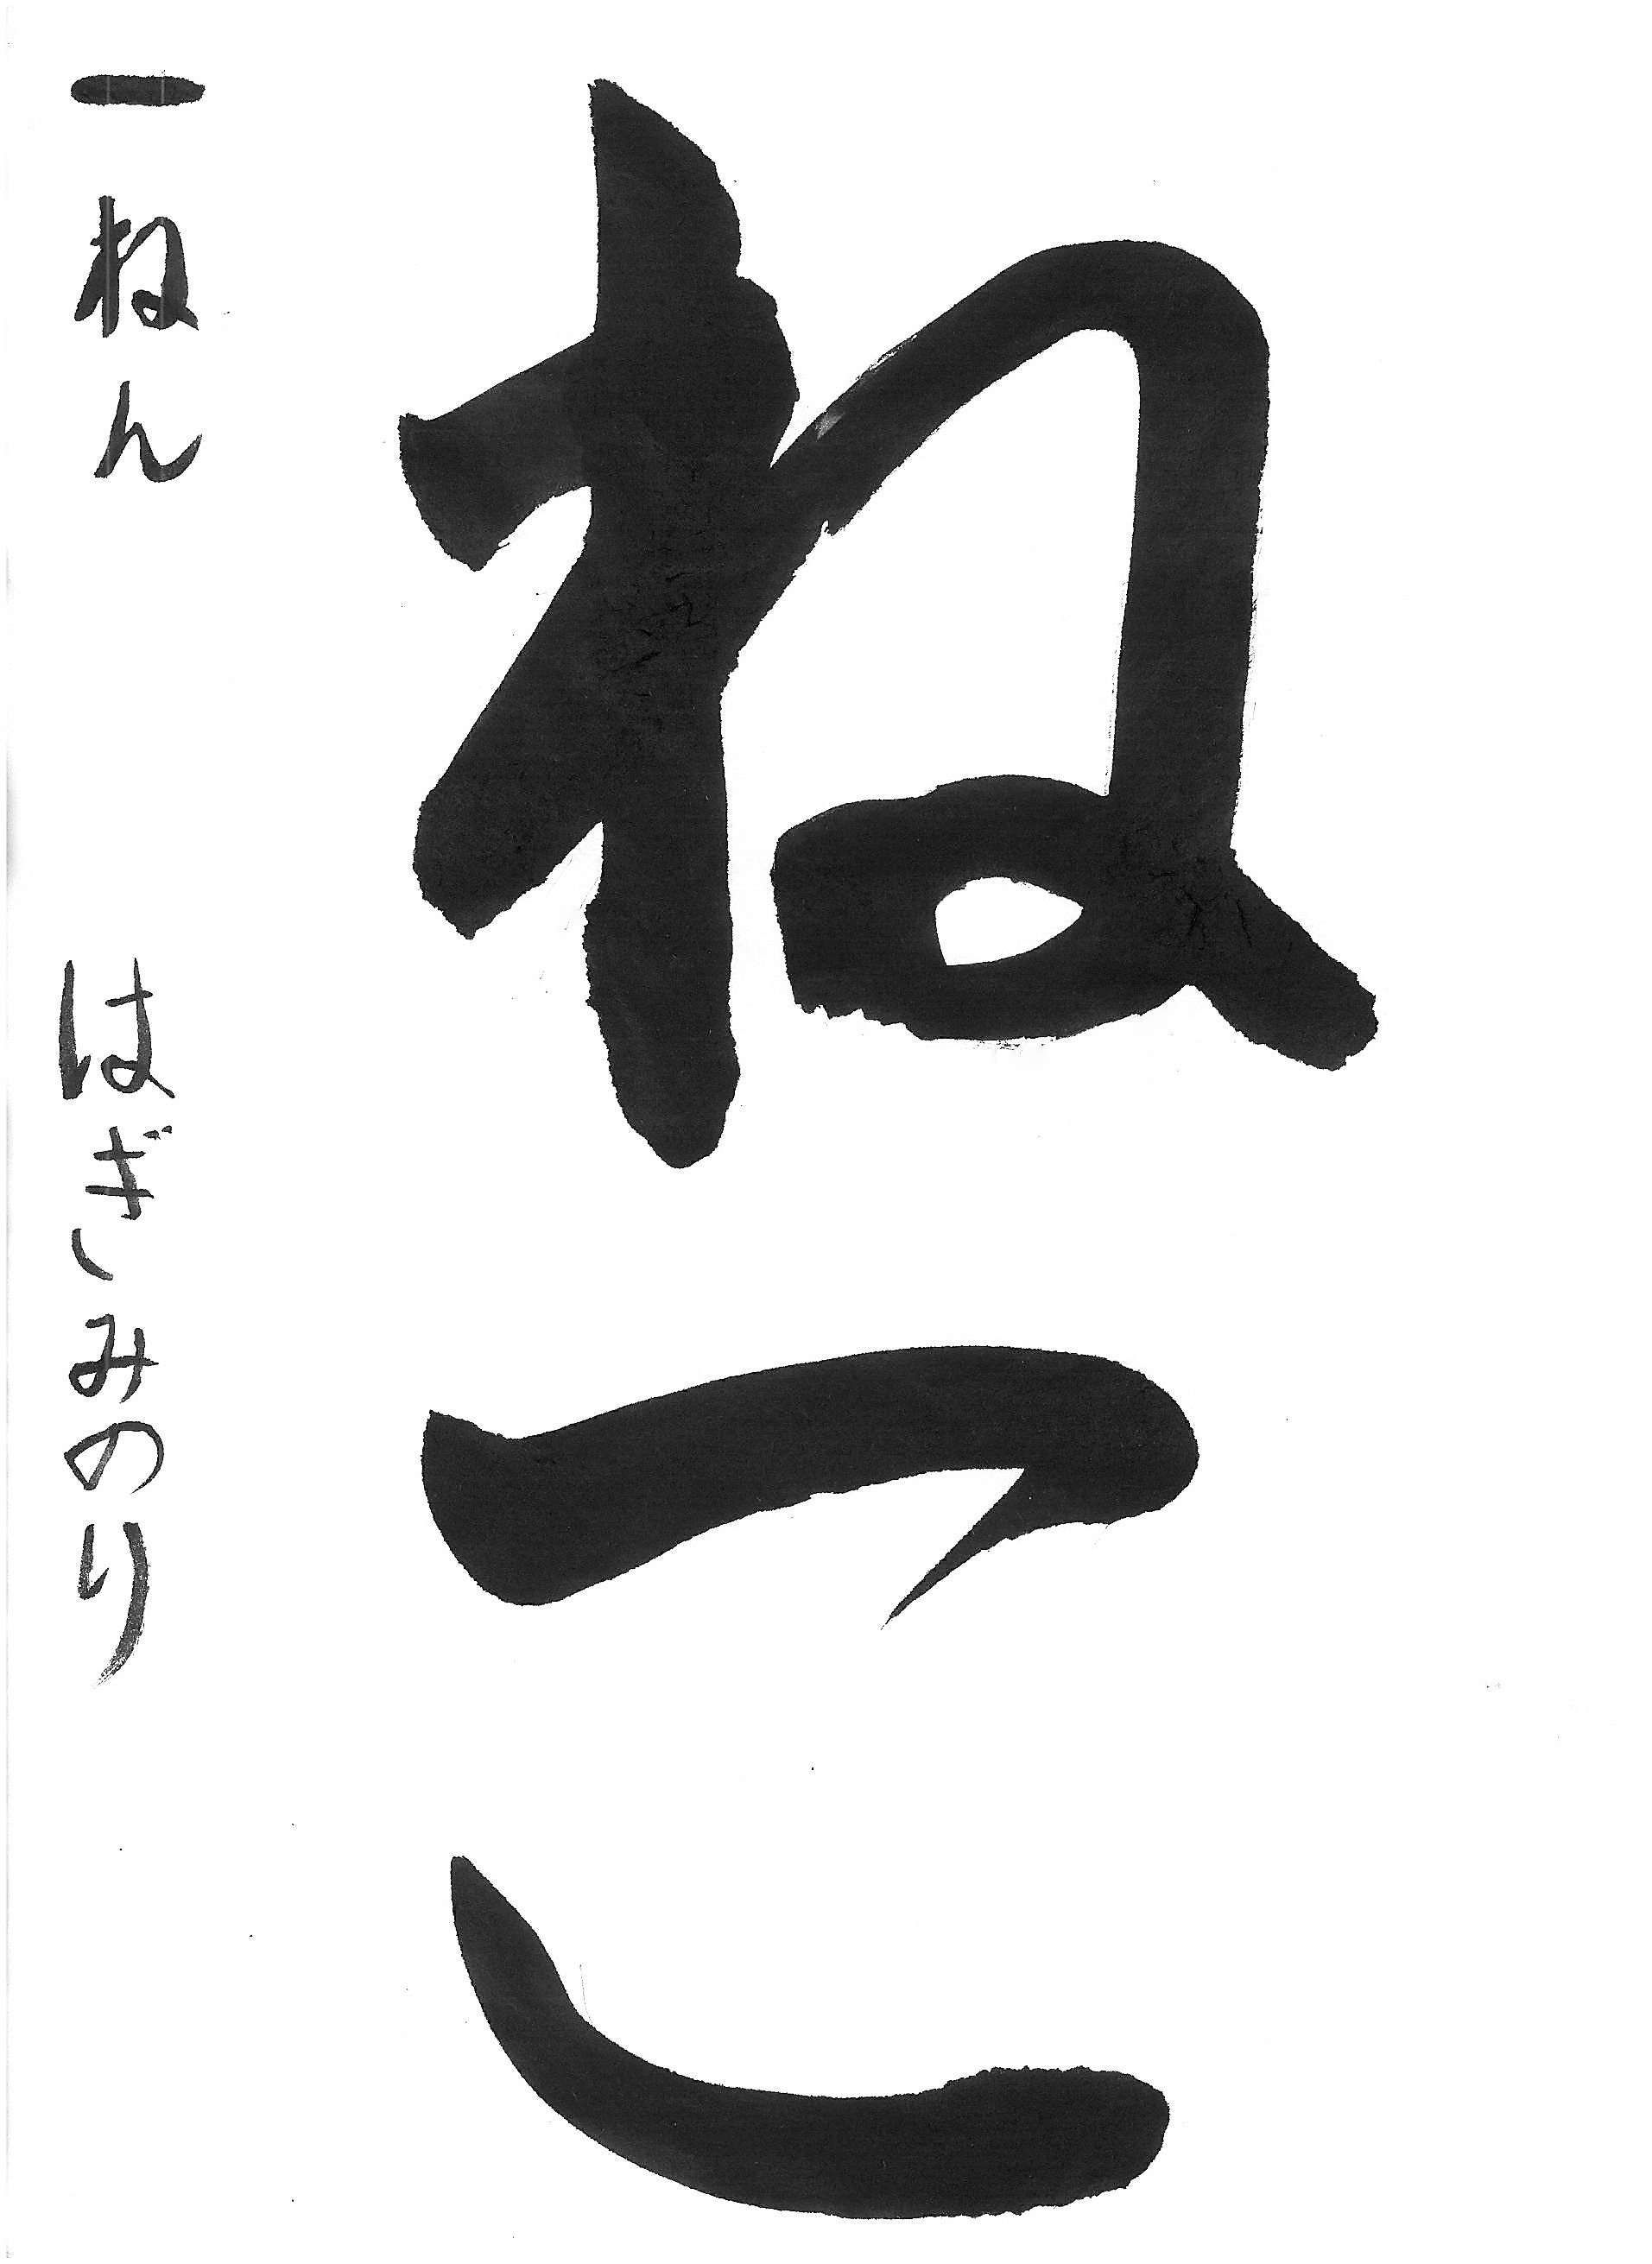 ねこ
一ねん はぎみのり